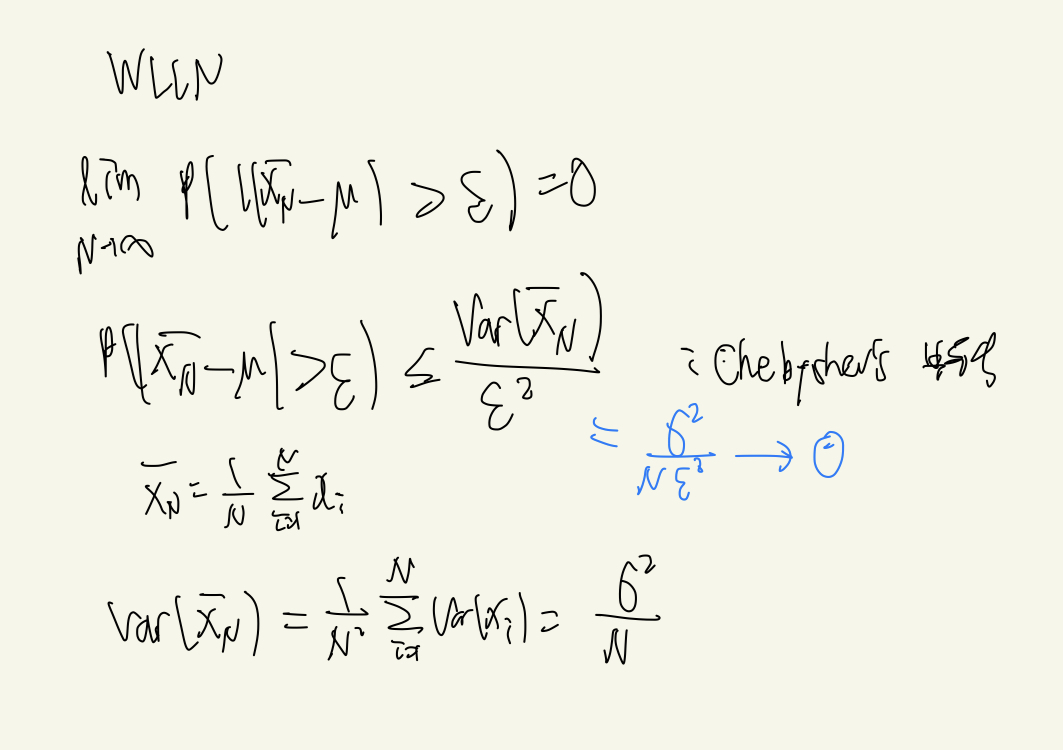 WLLN
lim N→∞ P(|X̄_N − μ| > ε) = 0
P(|X̄_N − μ| > ε) ≤ Var(X̄_N) / ε² : Chebyshev's
= σ² / Nε² → 0
X̄_N = 1/N Σ_{i=1}^{N} x_i
Var(X̄_N) = 1/N² Σ_{i=1}^{N} Var(x_i) = σ² / N